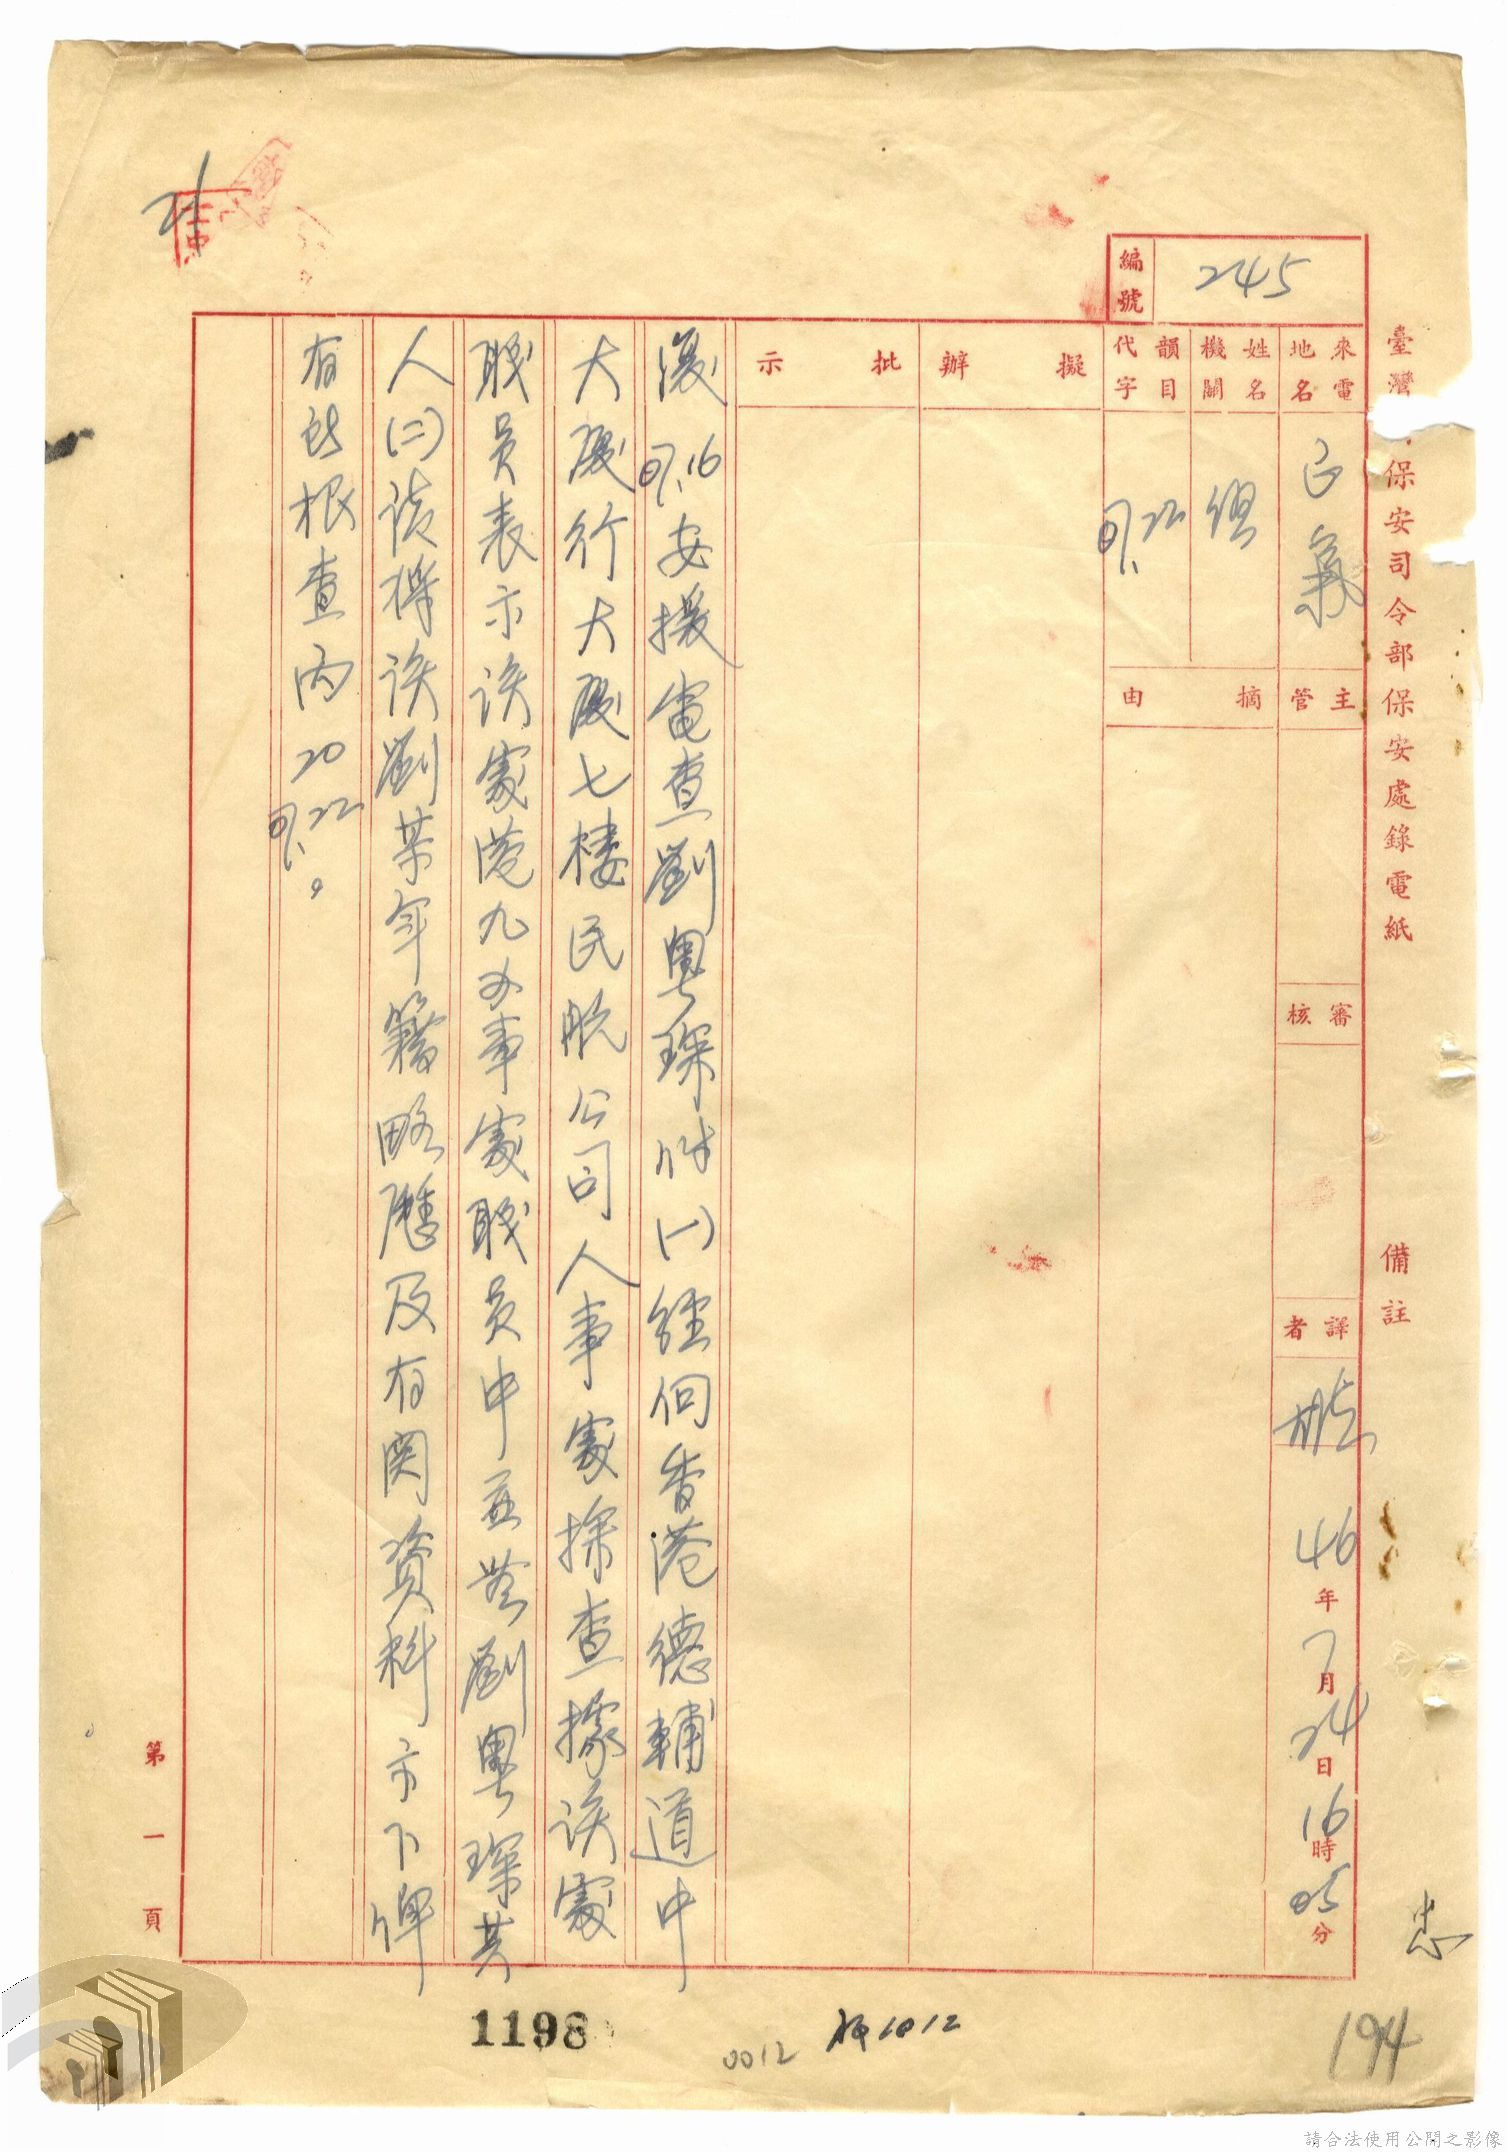 臺灣
保安司令部保安處錄電紙
備註
編號
245
來電地名
正氣
姓名機關
韻目代字
07.22
主管
摘由
審核
譯者
46年7月24日16時05分
擬辦
批示
復07.16安援電查劉粵琛件(一)經向香港德輔道中
大廈行大廈七樓民航公司人事處探查據該處
職員表示該處港九办事處職員中並無劉粵琛其
人(二)該機該劉某年籍略歷及有関資料方下俾
有所根查丙20
07.22。
第一頁
1198
0012
194
忠
請合法使用公開之影像